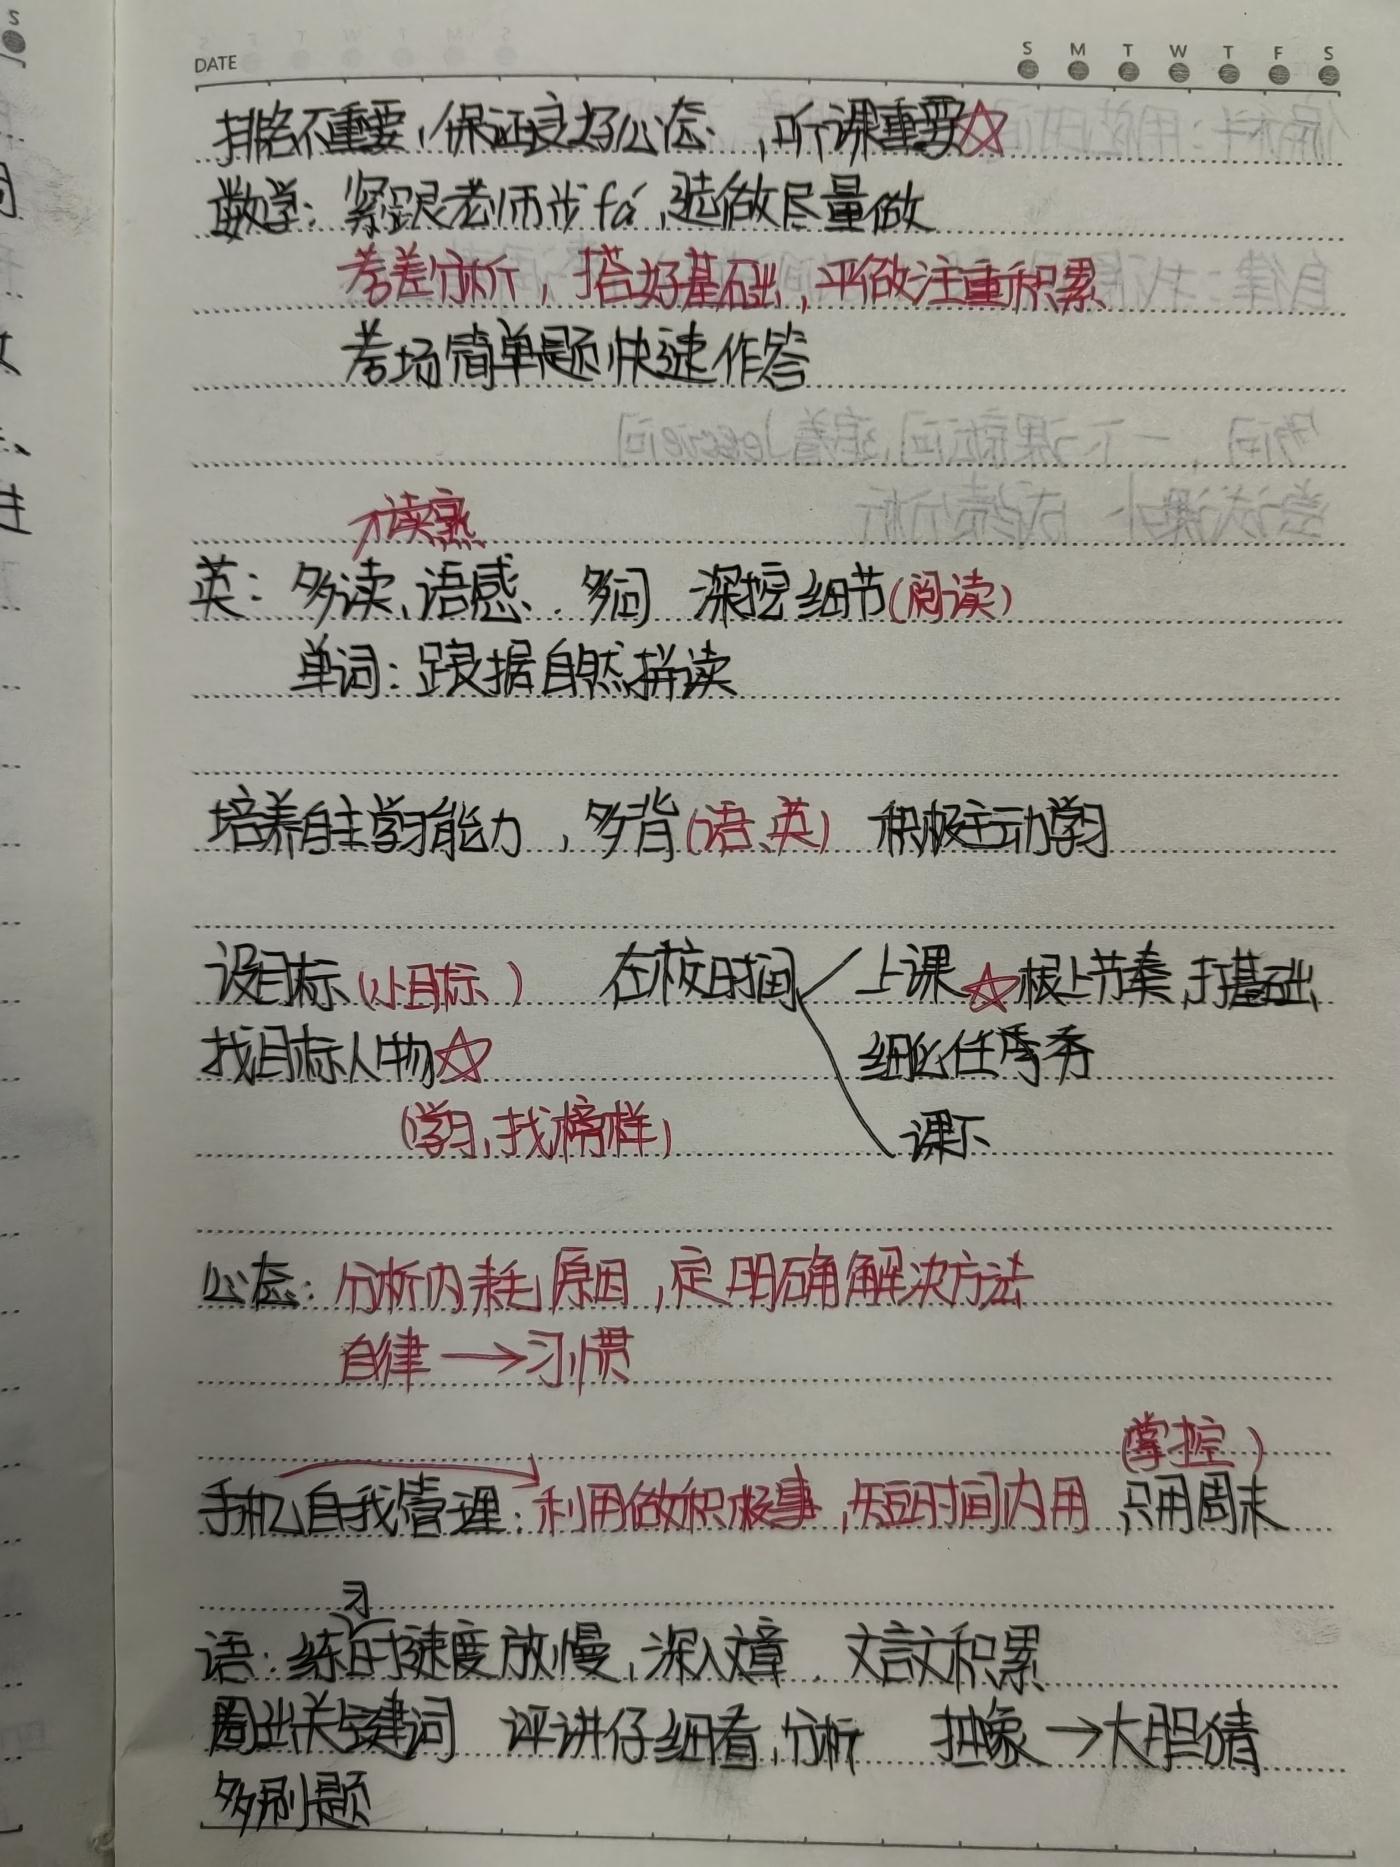 DATE
S M T W T F S
排名不重要，保证良好心态，听课重要☆
数学：紧跟老师步fá，选做尽量做
考差分析，搭好基础，平做注重积累
考场简单题快速作答
才读熟
英：多读、语感、多问 深挖细节(阅读)
单词：跟据自然拼读
培养自主学习能力，多背(语、英) 积极主动学习
设目标(小目标) 在校时间 上课☆根上节奏，打基础
找目标人物☆ 细化任务
(学习，找榜样) 课下
心态：分析内耗原因，定明确解决方法
自律→习惯
(掌控)
手机自我管理：利用做积极事，短时间内用 只用周末
习
语：练时速度放慢，深入文章，文言文积累
圈出关键词 评讲仔细看，分析 抽象→大胆猜
多刷题